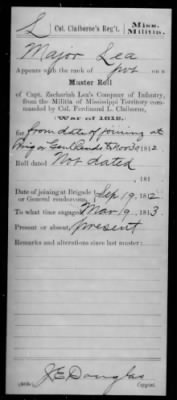 L | Col. Claiborne's Reg't. | Miss. Militia.
Major Lea
Appears with the rank of Pvt on a
Muster Roll
of Capt. Zachariah Lea's Company of Infantry,
from the Militia of Mississippi Territory com-
manded by Col. Ferdinand L. Claiborne,
War of 1812,
for from date of joining at
Brig or Genl Rends to Nov 30 1812
Roll dated Not dated
181
Date of joining at Brigade or General rendezvous, Sep 19, 1812
To what time engaged, Mar 19, 1813
Present or absent, present
Remarks and alterations since last muster:
J E Douglas
Copyist.